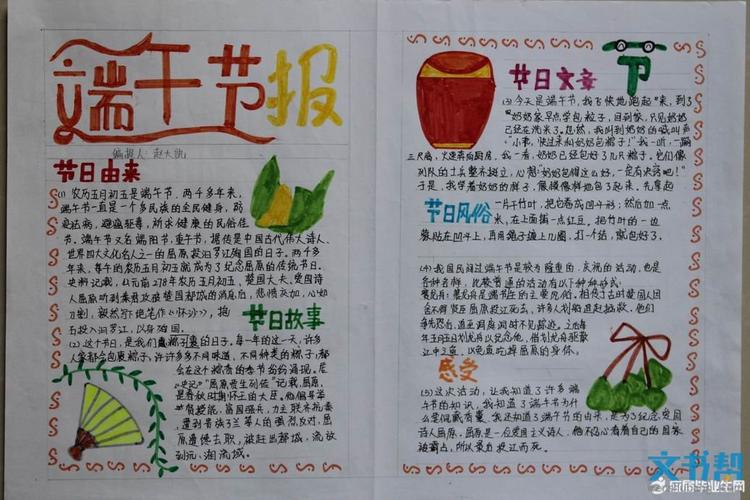 端午节报
编报人：赵大凯
节日由来
(1) 农历五月初五是端午节．两千多年来，
端午节一直是一个多民族的全民健身，防
疫祛病，避瘟驱毒，祈求健康的民俗佳
节．端午节又名端阳节，重午节，据传是中国古代伟大诗人、
世界四大文化名人之一的屈原，投汨罗江殉国的日子．两千多
年来，每年的农历五月初五就成为了纪念屈原的传统节日．
史料记载，公元前278年农历五月初五，楚国大夫、爱国诗
人屈原听到秦军攻破楚国都城的消息后，悲愤交加，心如
刀割，毅然写下绝笔作《怀沙》，抱
石投入汨罗江，以身殉国．
节日故事
(2) 这个节日，是我们裹粽子的日子．每一年的这一天，许多
人家都会包裹粽子，许许多多不同味道，不同种类的粽子，都
会在这个粽香的季节纷纷涌现．
《史记》"屈原贾生列传"记载，屈原，
是春秋时期怀王的大臣．他倡导举
贤授能，富国强兵，力主联齐抗秦，
遭到贵族子兰等人的强烈反对，屈
原遭馋去职，被赶出都城，流放
到沅、湘流域．
节
节日文章
(3) 今天是端午节，我飞快地跑起来，到了
奶奶家早点学包粽子，回到家，只见奶奶
已经在洗米了．忽然，我听到奶奶的喊叫声
"小凯，快过来和奶奶包粽子！"我一听，一蹦
三尺高，火速奔向厨房，我一看，奶奶已经包好了几只粽子．它们像
列队的士兵整齐树立，心想："奶奶包得这么好，一定有诀窍吧！"
于是，我学着奶奶的样子，像模像样地包了起来．先拿起
节日风俗
一片竹叶，把它卷成凹斗形；然后加一点
米，在上面铺一点红豆，把竹叶的一边
盖贴在凹斗上，再用绳子缠上几圈，打一个结，就包好了．
(4) 我国民间过端午节是较为隆重的，庆祝的活动，也是
各种各样，比较普遍的活动有以下种种形式：
赛龙舟：是龙舟是端午节的主要风俗，相传古时楚国人因
舍不得贤臣屈原投江死去，许多人划船追赶拯救．他们
争先恐后，追至洞庭湖时不见踪迹．之后每
年五月五日划龙舟以纪念他，借划龙舟驱散
江中之鱼，以免鱼吃掉屈原的身体．
感受
(5) 这次活动，让我知道了许多端
午节的知识，我知道了端午节为什
么要佩戴香囊．我还知道了端午节的由来，是为了纪念爱国
诗人屈原．屈原是一位爱国主义诗人，他不忍心看着自己的国家
被霸占，所以最后投江而死．
文书帮
应届毕业生网